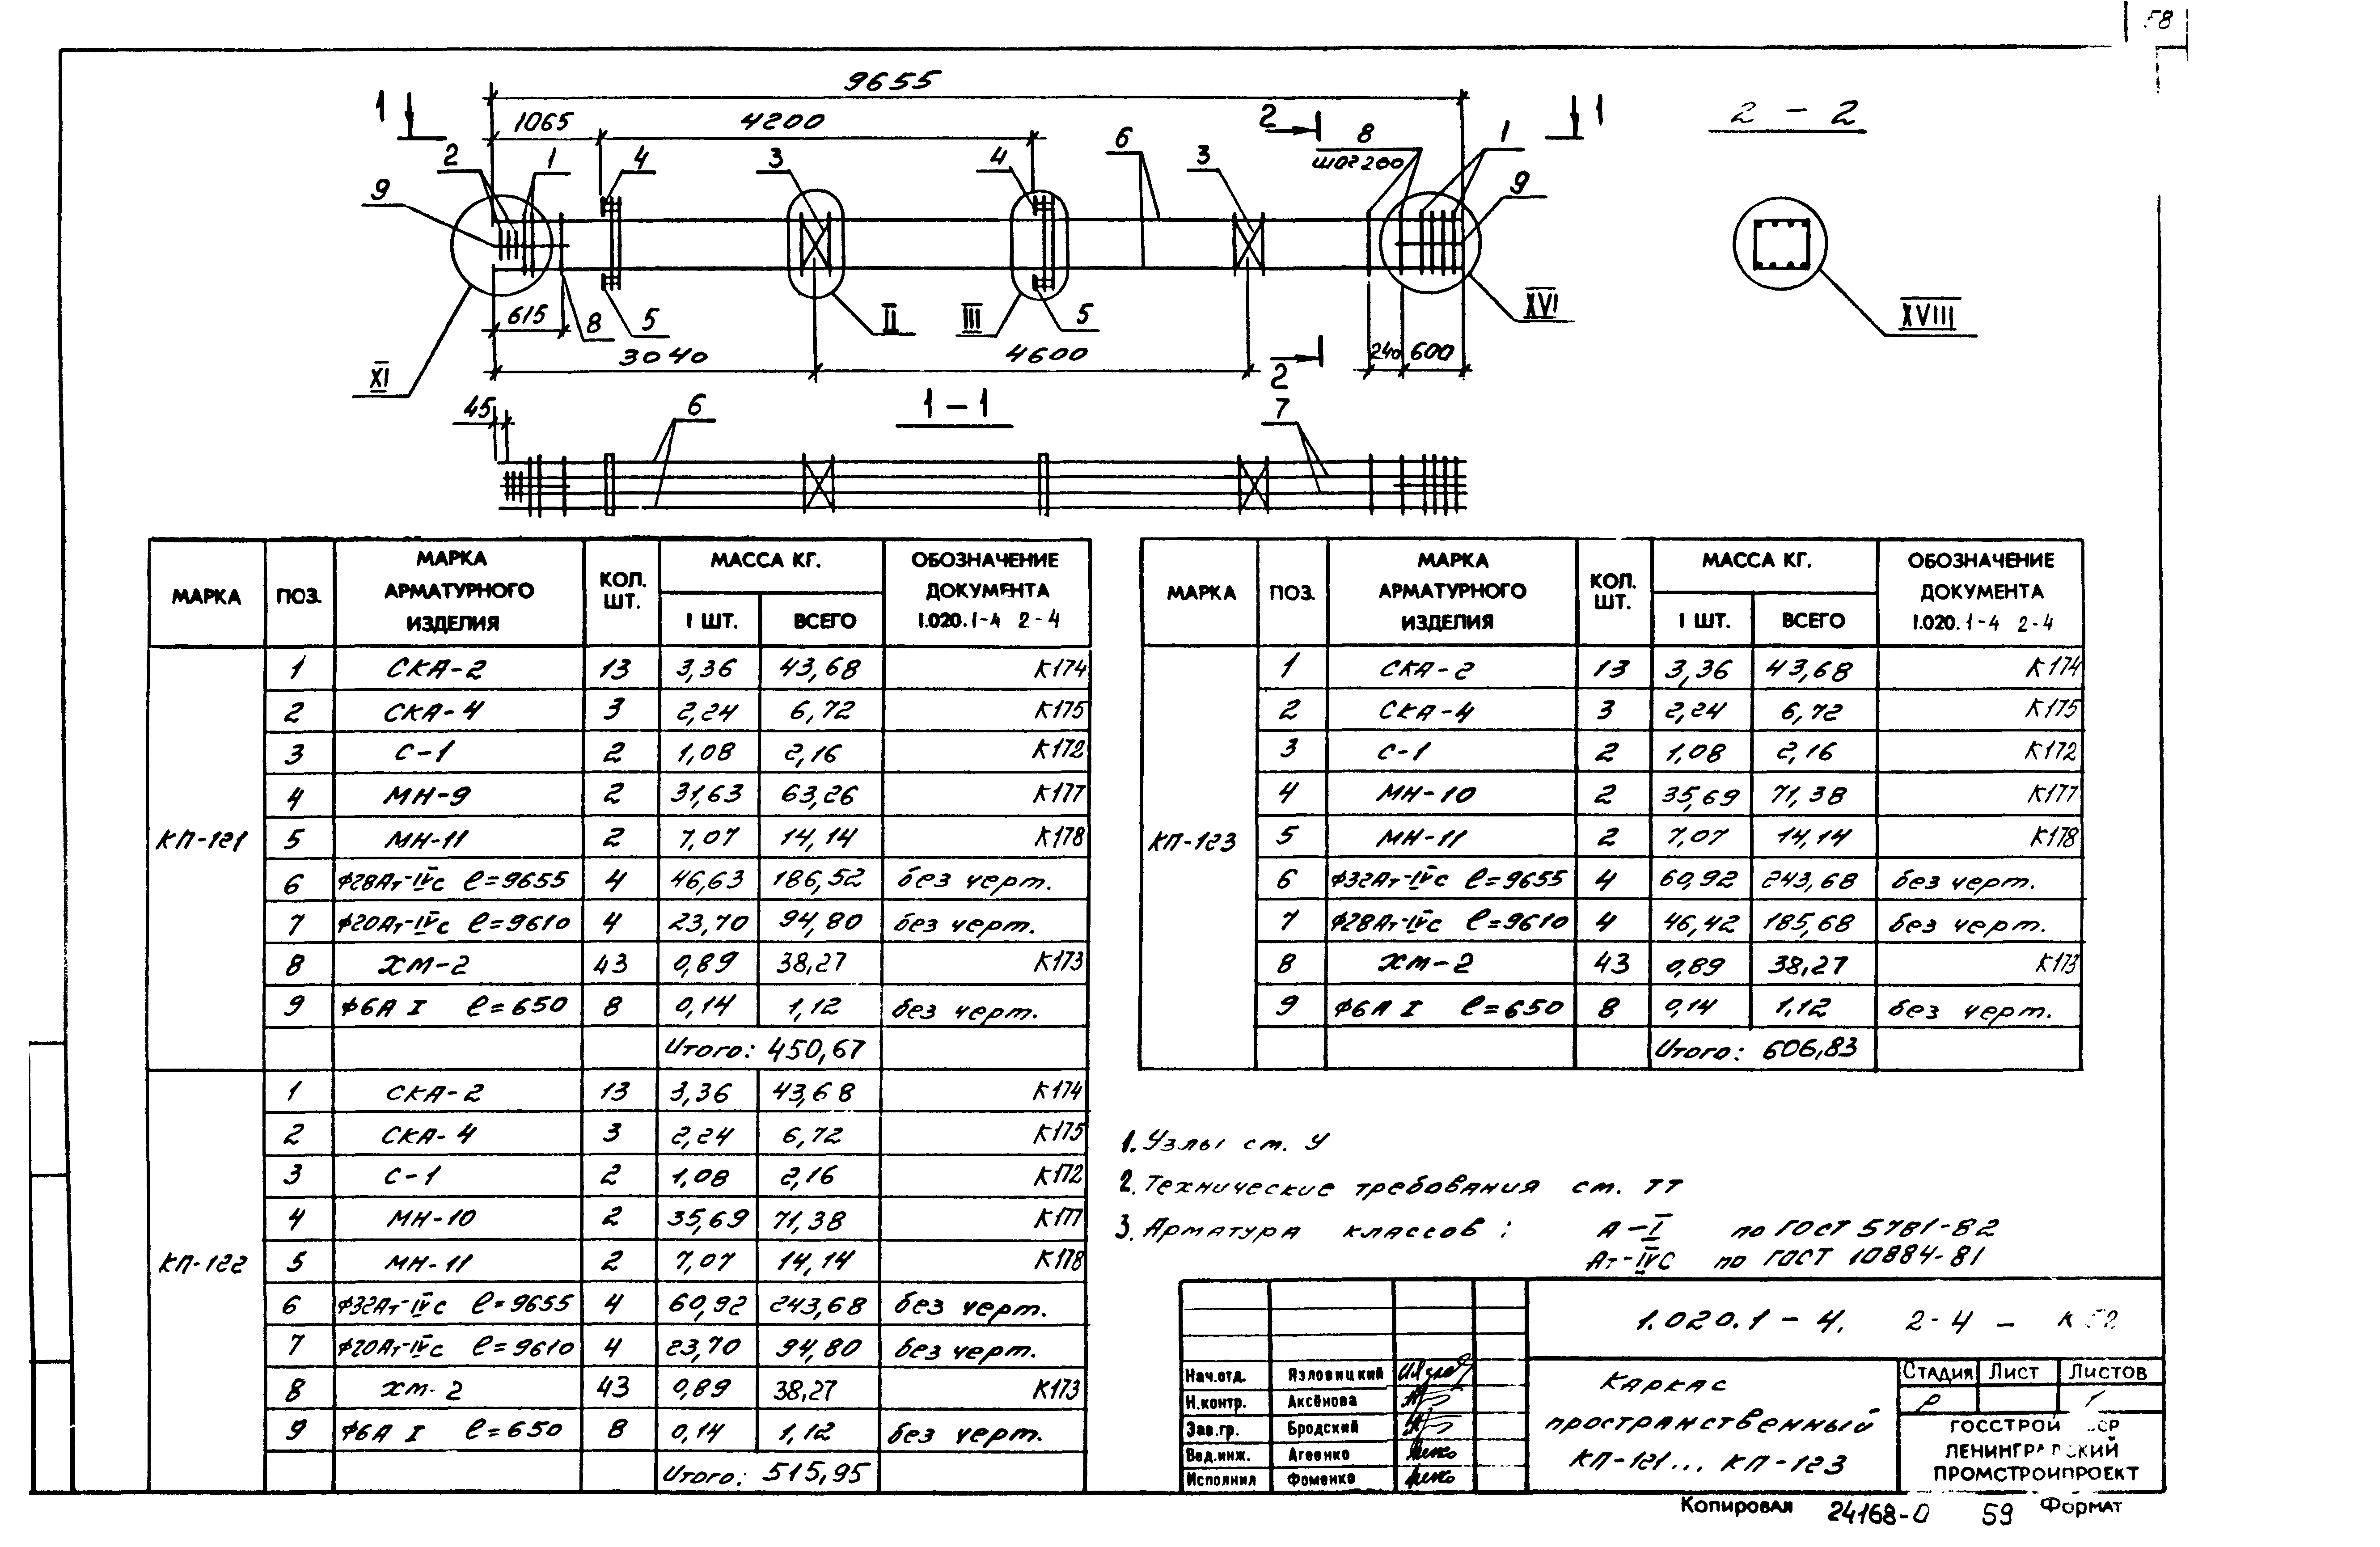 58
9655
1065 4200
1 2 8 1 1
шаг 200
2 1 4 3 4 6 3
9 9
615 8 5 5
II III XVI
3040 4600 240 600
XI 2
2 - 2
XVIII
45 6 1-1 7
МАРКА ПОЗ. МАРКА АРМАТУРНОГО ИЗДЕЛИЯ КОЛ. ШТ. МАССА КГ. ОБОЗНАЧЕНИЕ ДОКУМЕНТА 1.020.1-4 2-4
1 ШТ. ВСЕГО
КП-121
1 СКА-2 13 3,36 43,68 К174
2 СКА-4 3 2,24 6,72 К175
3 С-1 2 1,08 2,16 К172
4 МН-9 2 31,63 63,26 К177
5 МН-11 2 7,07 14,14 К178
6 Ф28Ат-IVс ℓ=9655 4 46,63 186,52 без черт.
7 Ф20Ат-IVс ℓ=9610 4 23,70 94,80 без черт.
8 ХМ-2 43 0,89 38,27 К173
9 Ф6А I ℓ=650 8 0,14 1,12 без черт.
Итого: 450,67
КП-122
1 СКА-2 13 3,36 43,68 К174
2 СКА-4 3 2,24 6,72 К175
3 С-1 2 1,08 2,16 К172
4 МН-10 2 35,69 71,38 К177
5 МН-11 2 7,07 14,14 К178
6 Ф32Ат-IVс ℓ=9655 4 60,92 243,68 без черт.
7 Ф20Ат-IVс ℓ=9610 4 23,70 94,80 без черт.
8 ХМ-2 43 0,89 38,27 К173
9 Ф6А I ℓ=650 8 0,14 1,12 без черт.
Итого: 515,95
МАРКА ПОЗ. МАРКА АРМАТУРНОГО ИЗДЕЛИЯ КОЛ. ШТ. МАССА КГ. ОБОЗНАЧЕНИЕ ДОКУМЕНТА 1.020.1-4 2-4
1 ШТ. ВСЕГО
КП-123
1 СКА-2 13 3,36 43,68 К174
2 СКА-4 3 2,24 6,72 К175
3 С-1 2 1,08 2,16 К172
4 МН-10 2 35,69 71,38 К177
5 МН-11 2 7,07 14,14 К178
6 Ф32Ат-IVс ℓ=9655 4 60,92 243,68 без черт.
7 Ф28Ат-IVс ℓ=9610 4 46,42 185,68 без черт.
8 ХМ-2 43 0,89 38,27 К173
9 Ф6А I ℓ=650 8 0,14 1,12 без черт.
Итого: 606,83
1. Узлы см. У
2. Технические требования см. ТТ
3. Арматура классов: А-I по ГОСТ 5781-82
Ат-IVС по ГОСТ 10884-81
1.020.1-4. 2-4 - К52
Нач.отд. Язловицкий
Н.контр. Аксёнова
Зав.гр. Бродский
Вед.инж. Агеенко
Исполнил Фоменко
Каркас
пространственный
КП-121... КП-123
Стадия Лист Листов
Р 1
ГОССТРОЙ СССР
ЛЕНИНГРАДСКИЙ
ПРОМСТРОЙПРОЕКТ
Копировал 24168-0 59 Формат